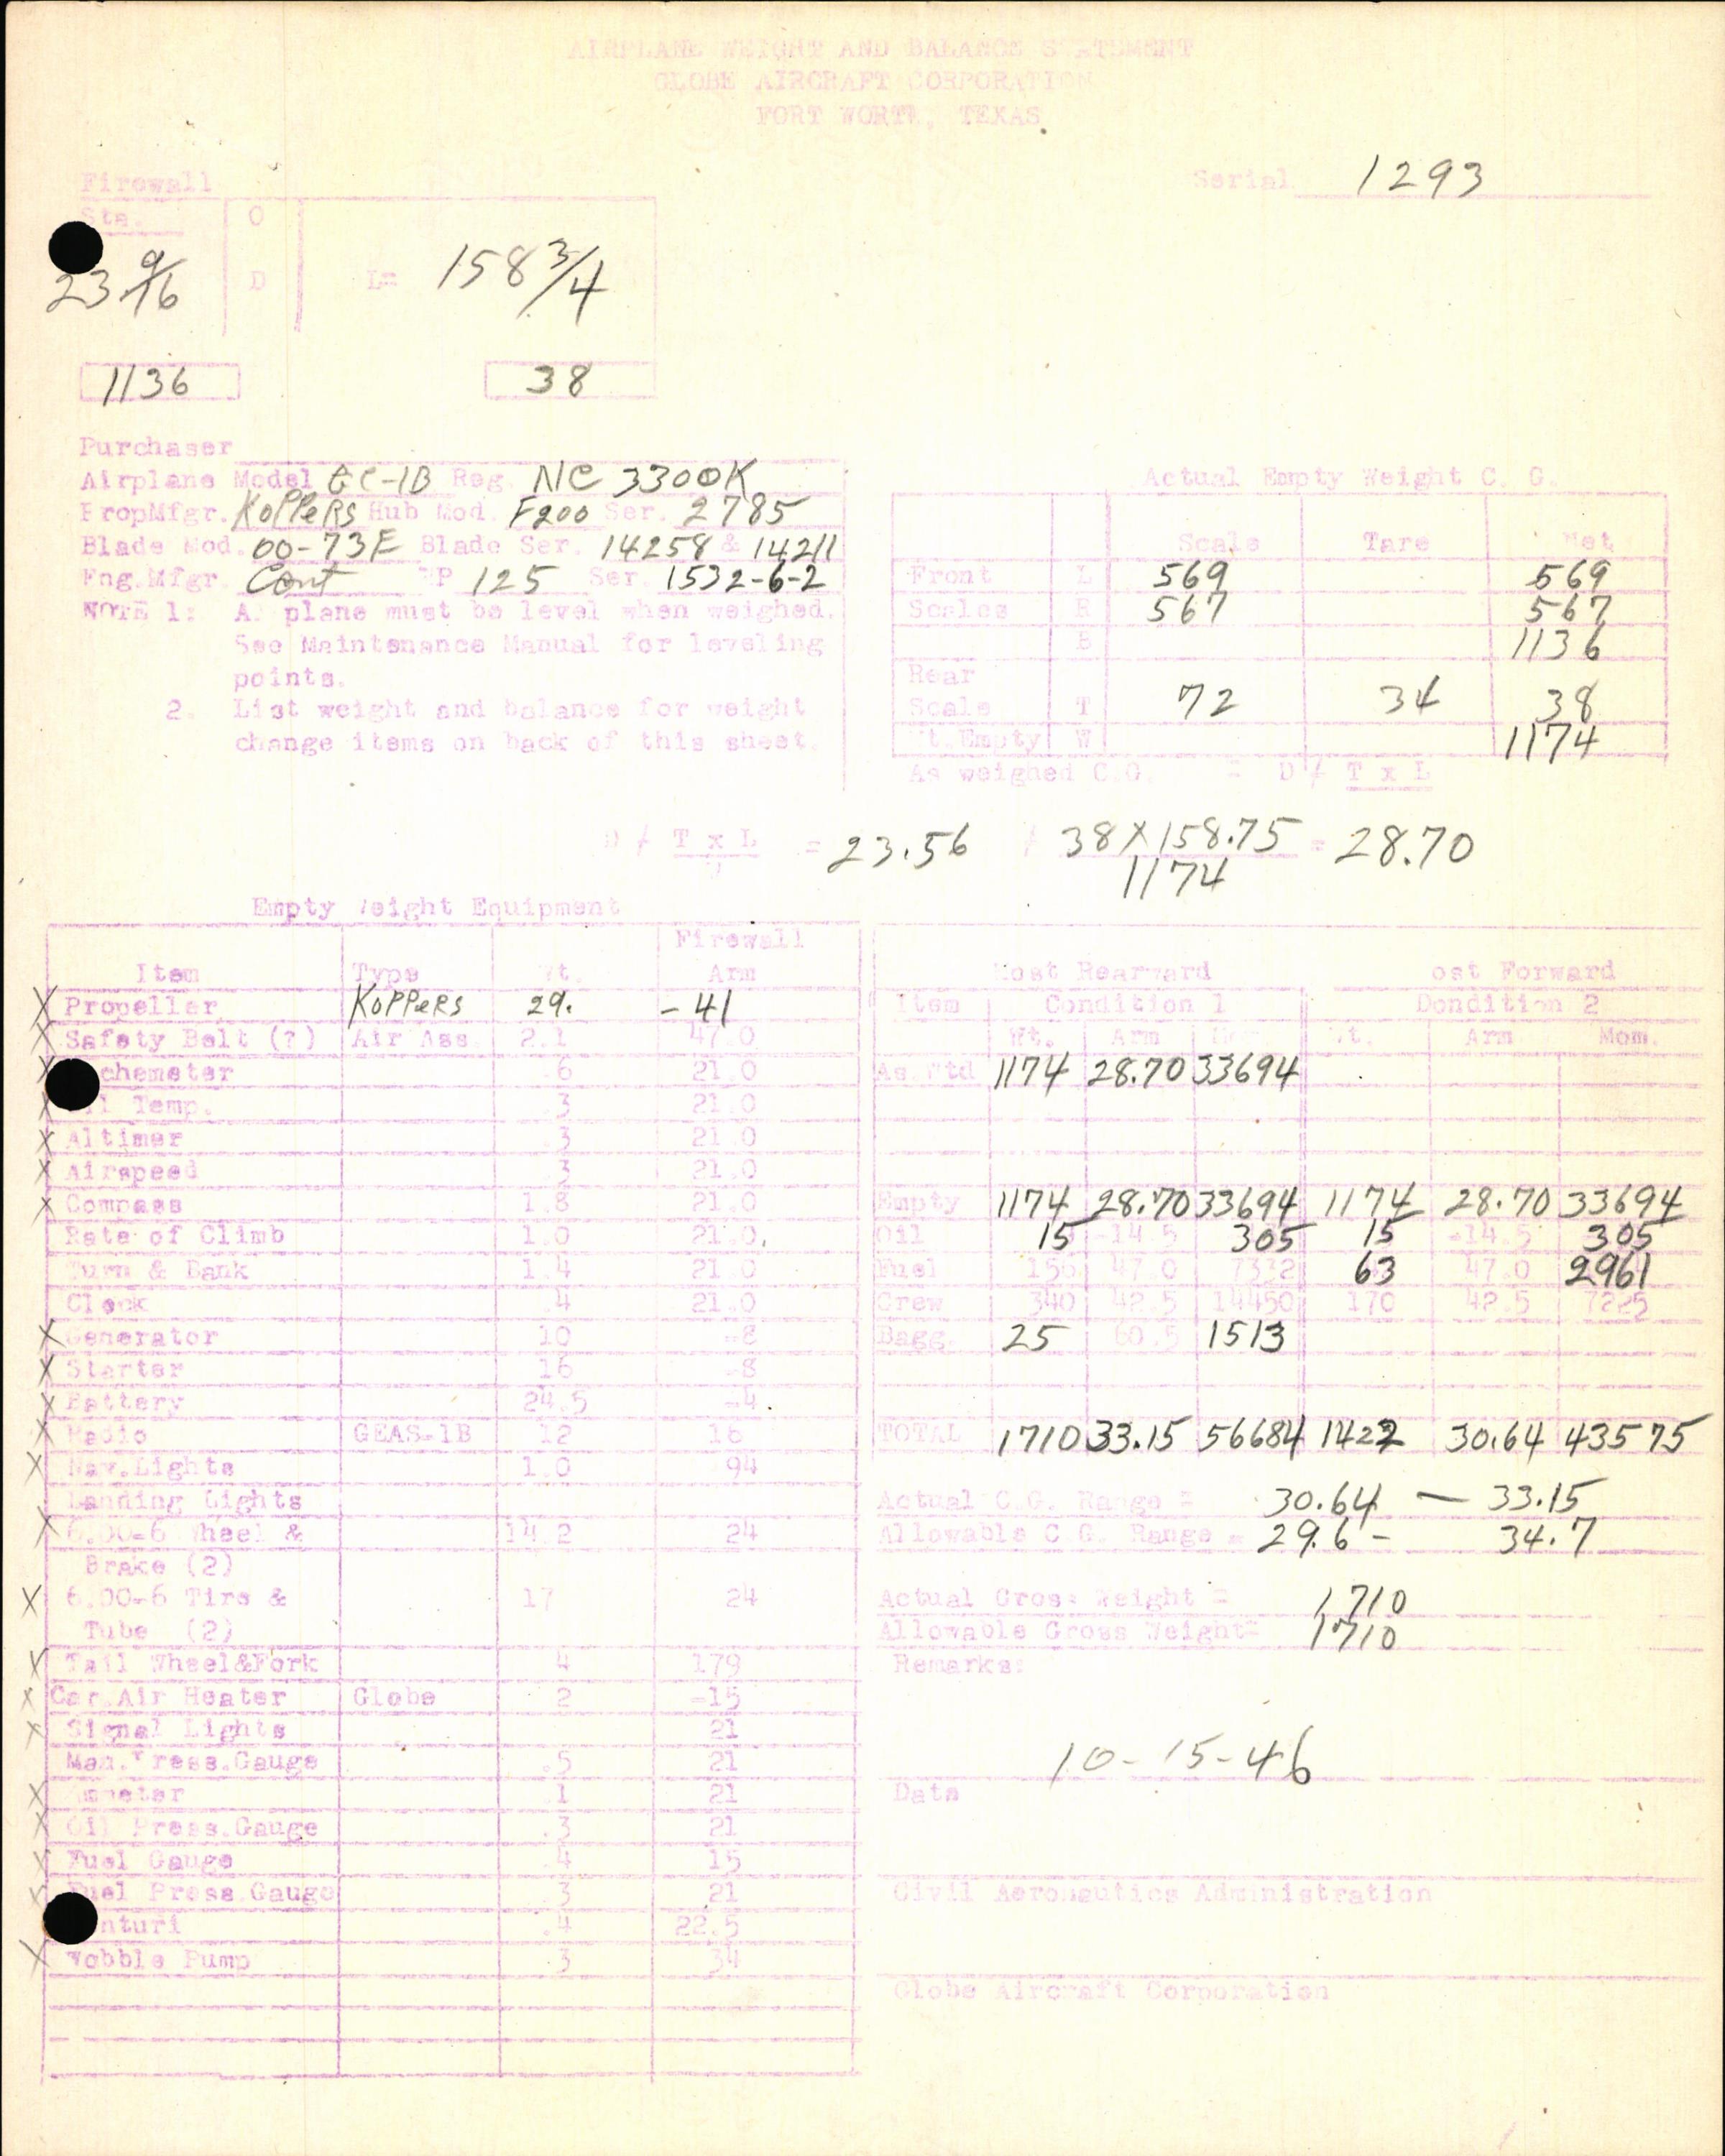 AIRPLANE WEIGHT AND BALANCE STATEMENT
GLOBE AIRCRAFT CORPORATION
FORT WORTH, TEXAS
Serial 1293
Firewall
Sta. O
23 9/16 D L= 158 3/4
1136 38
Purchaser
Airplane Model GC-1B Reg. NC 3300K
PropMfgr. KOPPERS Hub Mod. F200 Ser. 2785
Blade Mod. 00-73E Blade Ser. 14258 & 14211
Eng.Mfgr. Cont HP 125 Ser. 1532-6-2
NOTE 1: A plane must be level when weighed.
See Maintenance Manual for leveling
points.
2. List weight and balance for weight
change items on back of this sheet.
Actual Empty Weight C. G.
Scale Tare Net
Front L 569 569
Scales R 567 567
B 1136
Rear
Scale T 72 34 38
Wt.Empty W 1174
As weighed C.G. = D / T x L
D / T x L = 23.56 / 38 X 158.75 = 28.70
W 1174
Empty Weight Equipment
Firewall
Item Type Wt. Arm
X Propeller KOPPERS 29. -41
X Safety Belt (?) Air Ass. 2.1 47.0
X chemeter .6 21.0
X il Temp. .3 21.0
X Altimer .3 21.0
X Airspeed .3 21.0
X Compass 1.8 21.0
Rate of Climb 1.0 21.0
Turn & Bank 1.4 21.0
Clock .4 21.0
X Generator 10 -8
X Starter 16 -8
X Battery 24.5 -4
X Radio GEAS-1B 12 16
X Nav.Lights 1.0 94
Landing Lights
X 6.00-6 Wheel & 14.2 24
Brake (2)
X 6.00-6 Tire & 17 24
Tube (2)
X Tail Wheel&Fork 4 179
X Car.Air Heater Globe 2 -15
X Signal Lights 21
Man.Press.Gauge .5 21
X Ammeter .1 21
X Oil Press.Gauge .3 21
X Fuel Gauge .4 15
X Fuel Press.Gauge .3 21
nturi .4 22.5
X Wobble Pump .3 34
Most Rearward Most Forward
Item Condition 1 Dondition 2
Wt. Arm Mom. Wt. Arm Mom.
As Wtd 1174 28.70 33694
Empty 1174 28.70 33694 1174 28.70 33694
Oil 15 -14.5 305 15 -14.5 305
Fuel 156 47.0 7332 63 47.0 2961
Crew 340 42.5 14450 170 42.5 7225
Bagg. 25 60.5 1513
TOTAL 1710 33.15 56684 1422 30.64 43575
Actual C.G. Range = 30.64 — 33.15
Allowable C.G. Range = 29.6 - 34.7
Actual Gross Weight = 1710
Allowable Gross Weight= 1710
Remarks:
10-15-46
Date
Civil Aeronautics Administration
Globe Aircraft Corporation